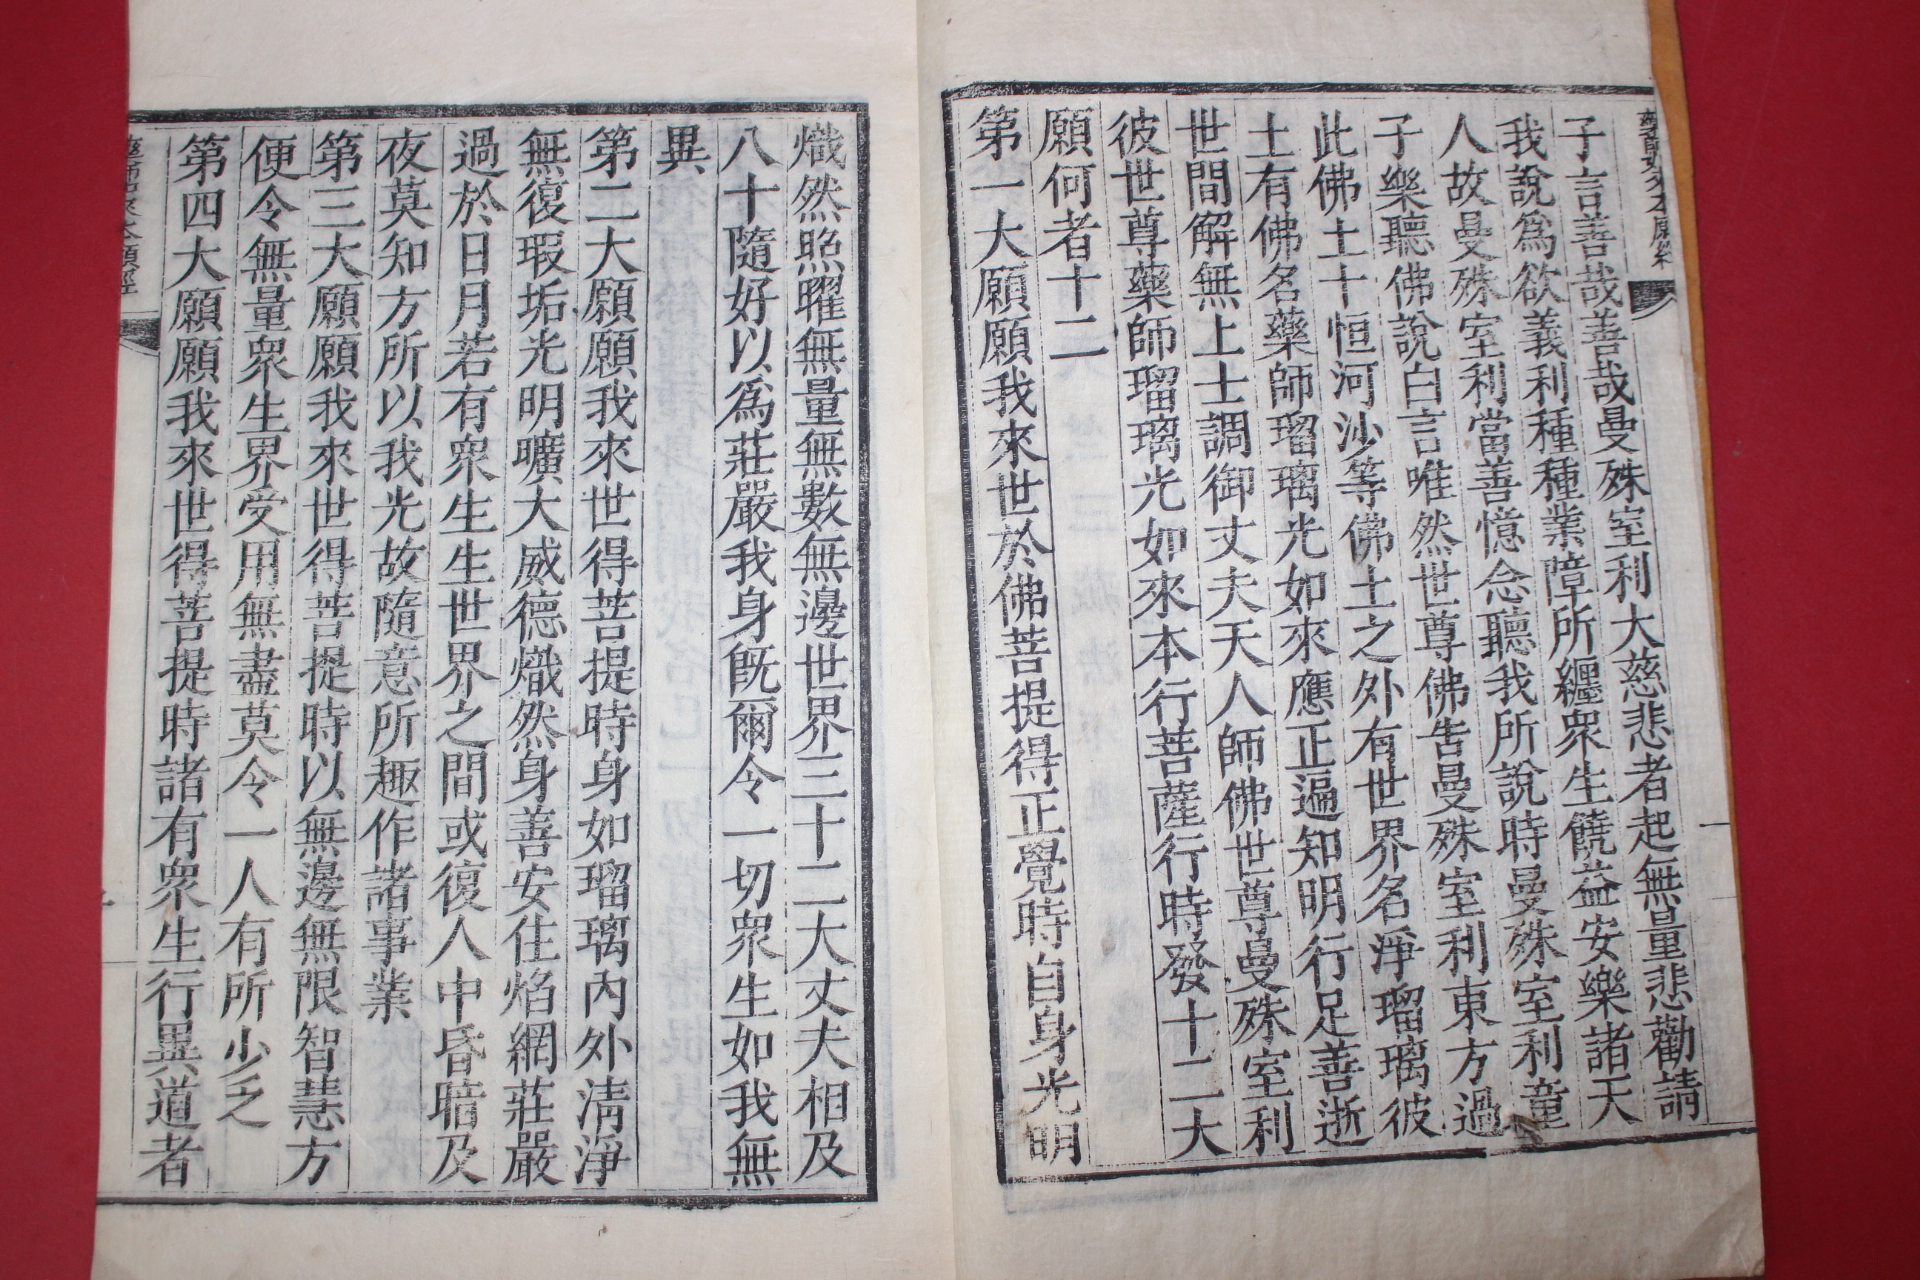 藥師如來本願經
子言善哉善哉曼殊室利大慈悲者起無量悲勸請
我說爲欲義利種種業障所纏衆生饒益安樂諸天
人故曼殊室利當善憶念聽我所說時曼殊室利童
子樂聽佛說白言唯然世尊佛告曼殊室利東方過
此佛土十恒河沙等佛土之外有世界名淨瑠璃彼
土有佛名藥師瑠璃光如來應正遍知明行足善逝
世間解無上士調御丈夫天人師佛世尊曼殊室利
彼世尊藥師瑠璃光如來本行菩薩行時發十二大
願何者十二
第一大願願我來世於佛菩提得正覺時自身光明
熾然照曜無量無數無邊世界三十二大丈夫相及
八十隨好以爲莊嚴我身旣爾令一切衆生如我無
異
第二大願願我來世得菩提時身如瑠璃內外清淨
無復瑕垢光明曠大威德熾然身善安住焰網莊嚴
過於日月若有衆生生世界之間或復人中昏暗及
夜莫知方所以我光故隨意所趣作諸事業
第三大願願我來世得菩提時以無邊無限智慧方
便令無量衆生界受用無盡莫令一人有所少乏
第四大願願我來世得菩提時諸有衆生行異道者
藥師如來本願經